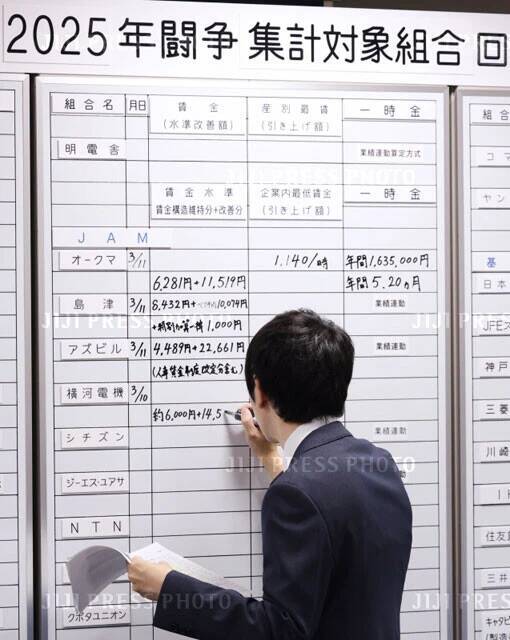 2025年闘争 集計対象組合 回
組合名 月日 賃金 産別最賃 一時金
(水準改善額) (引き上げ額)
明電舎 業績連動算定方式
賃金水準 企業内最低賃金 一時金
賃金構造維持分+改善分 (引き上げ額)
JAM
オークマ 3/11 1.140/時 年間1,635,000円
6,281円+11,519円 年間5.20ヵ月
島津 3/11 8,432円+ 10,074円 業績連動
1,000円
アズビル 3/11 4,489円+22,661円 業績連動
(人事賃金制度改定分含む)
横河電機 3/10
約6,000円+14,5
シチズン 業績連動
ジーエス・ユアサ 動
NTN
クボタユニオン
組合
コマ
ヤン
基
日本
JFEス
神戸
三菱
川崎
I
住友
三井
キャタピ
(製造
JIJI PRESS PHOTO
JIJI PRESS PHOTO
JIJI PRESS PHOTO
JIJI PRESS PHOTO
JIJI PRESS PHOTO
JIJI PRESS PHOTO